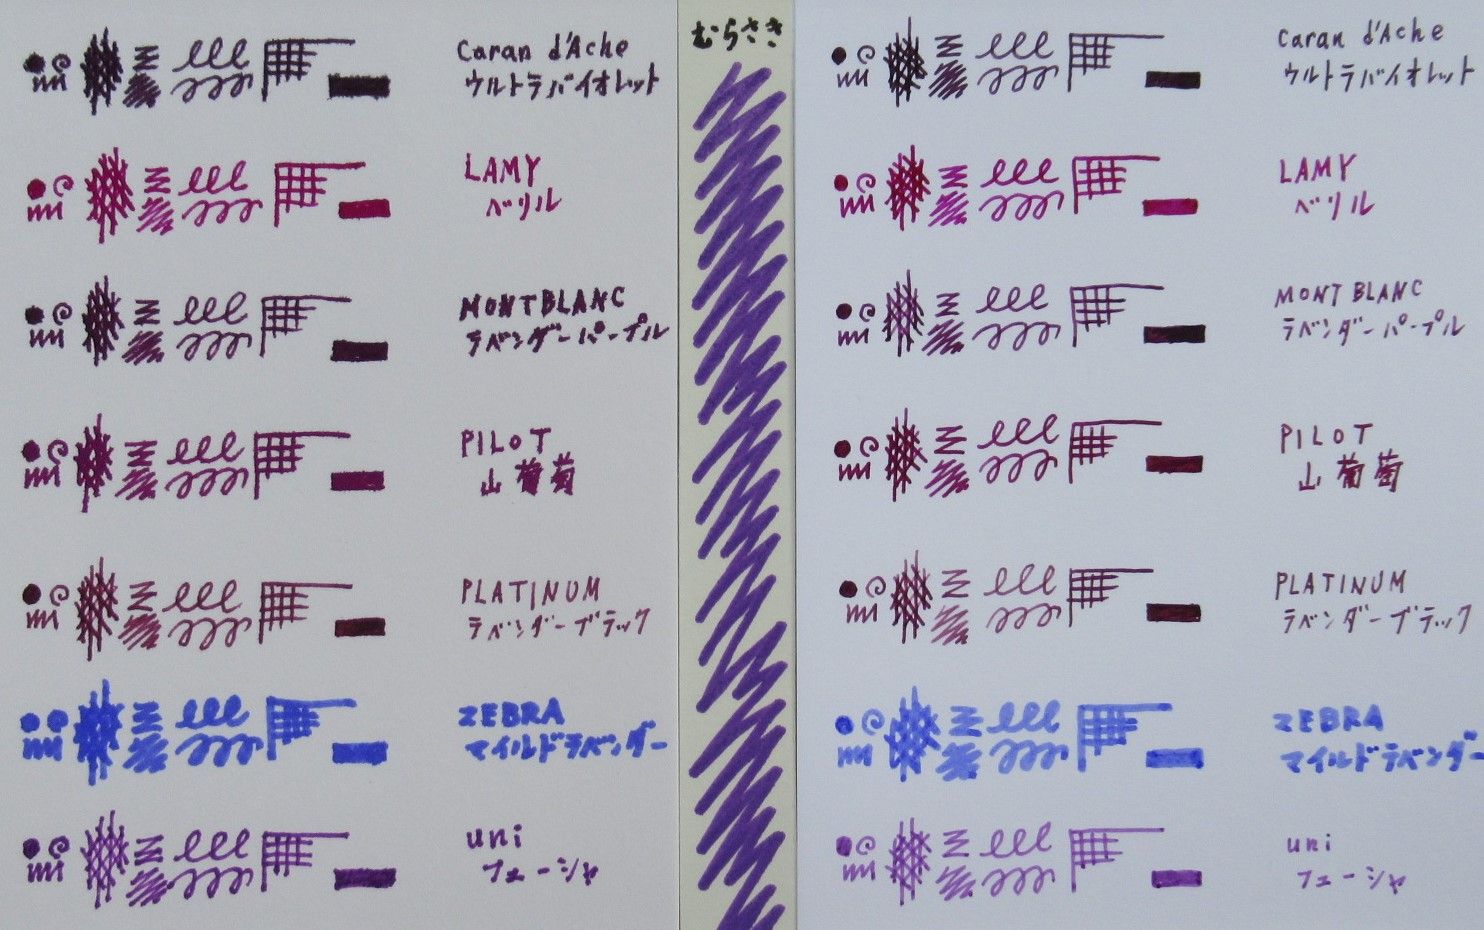 Caran d'Ache
ウルトラバイオレット
LAMY
ベリル
MONTBLANC
ラベンダーパープル
PILOT
山葡萄
PLATINUM
ラベンダーブラック
ZEBRA
マイルドラベンダー
uni
フューシャ
むらさき
Caran d'Ache
ウルトラバイオレット
LAMY
ベリル
MONTBLANC
ラベンダーパープル
PILOT
山葡萄
PLATINUM
ラベンダーブラック
ZEBRA
マイルドラベンダー
uni
フューシャ